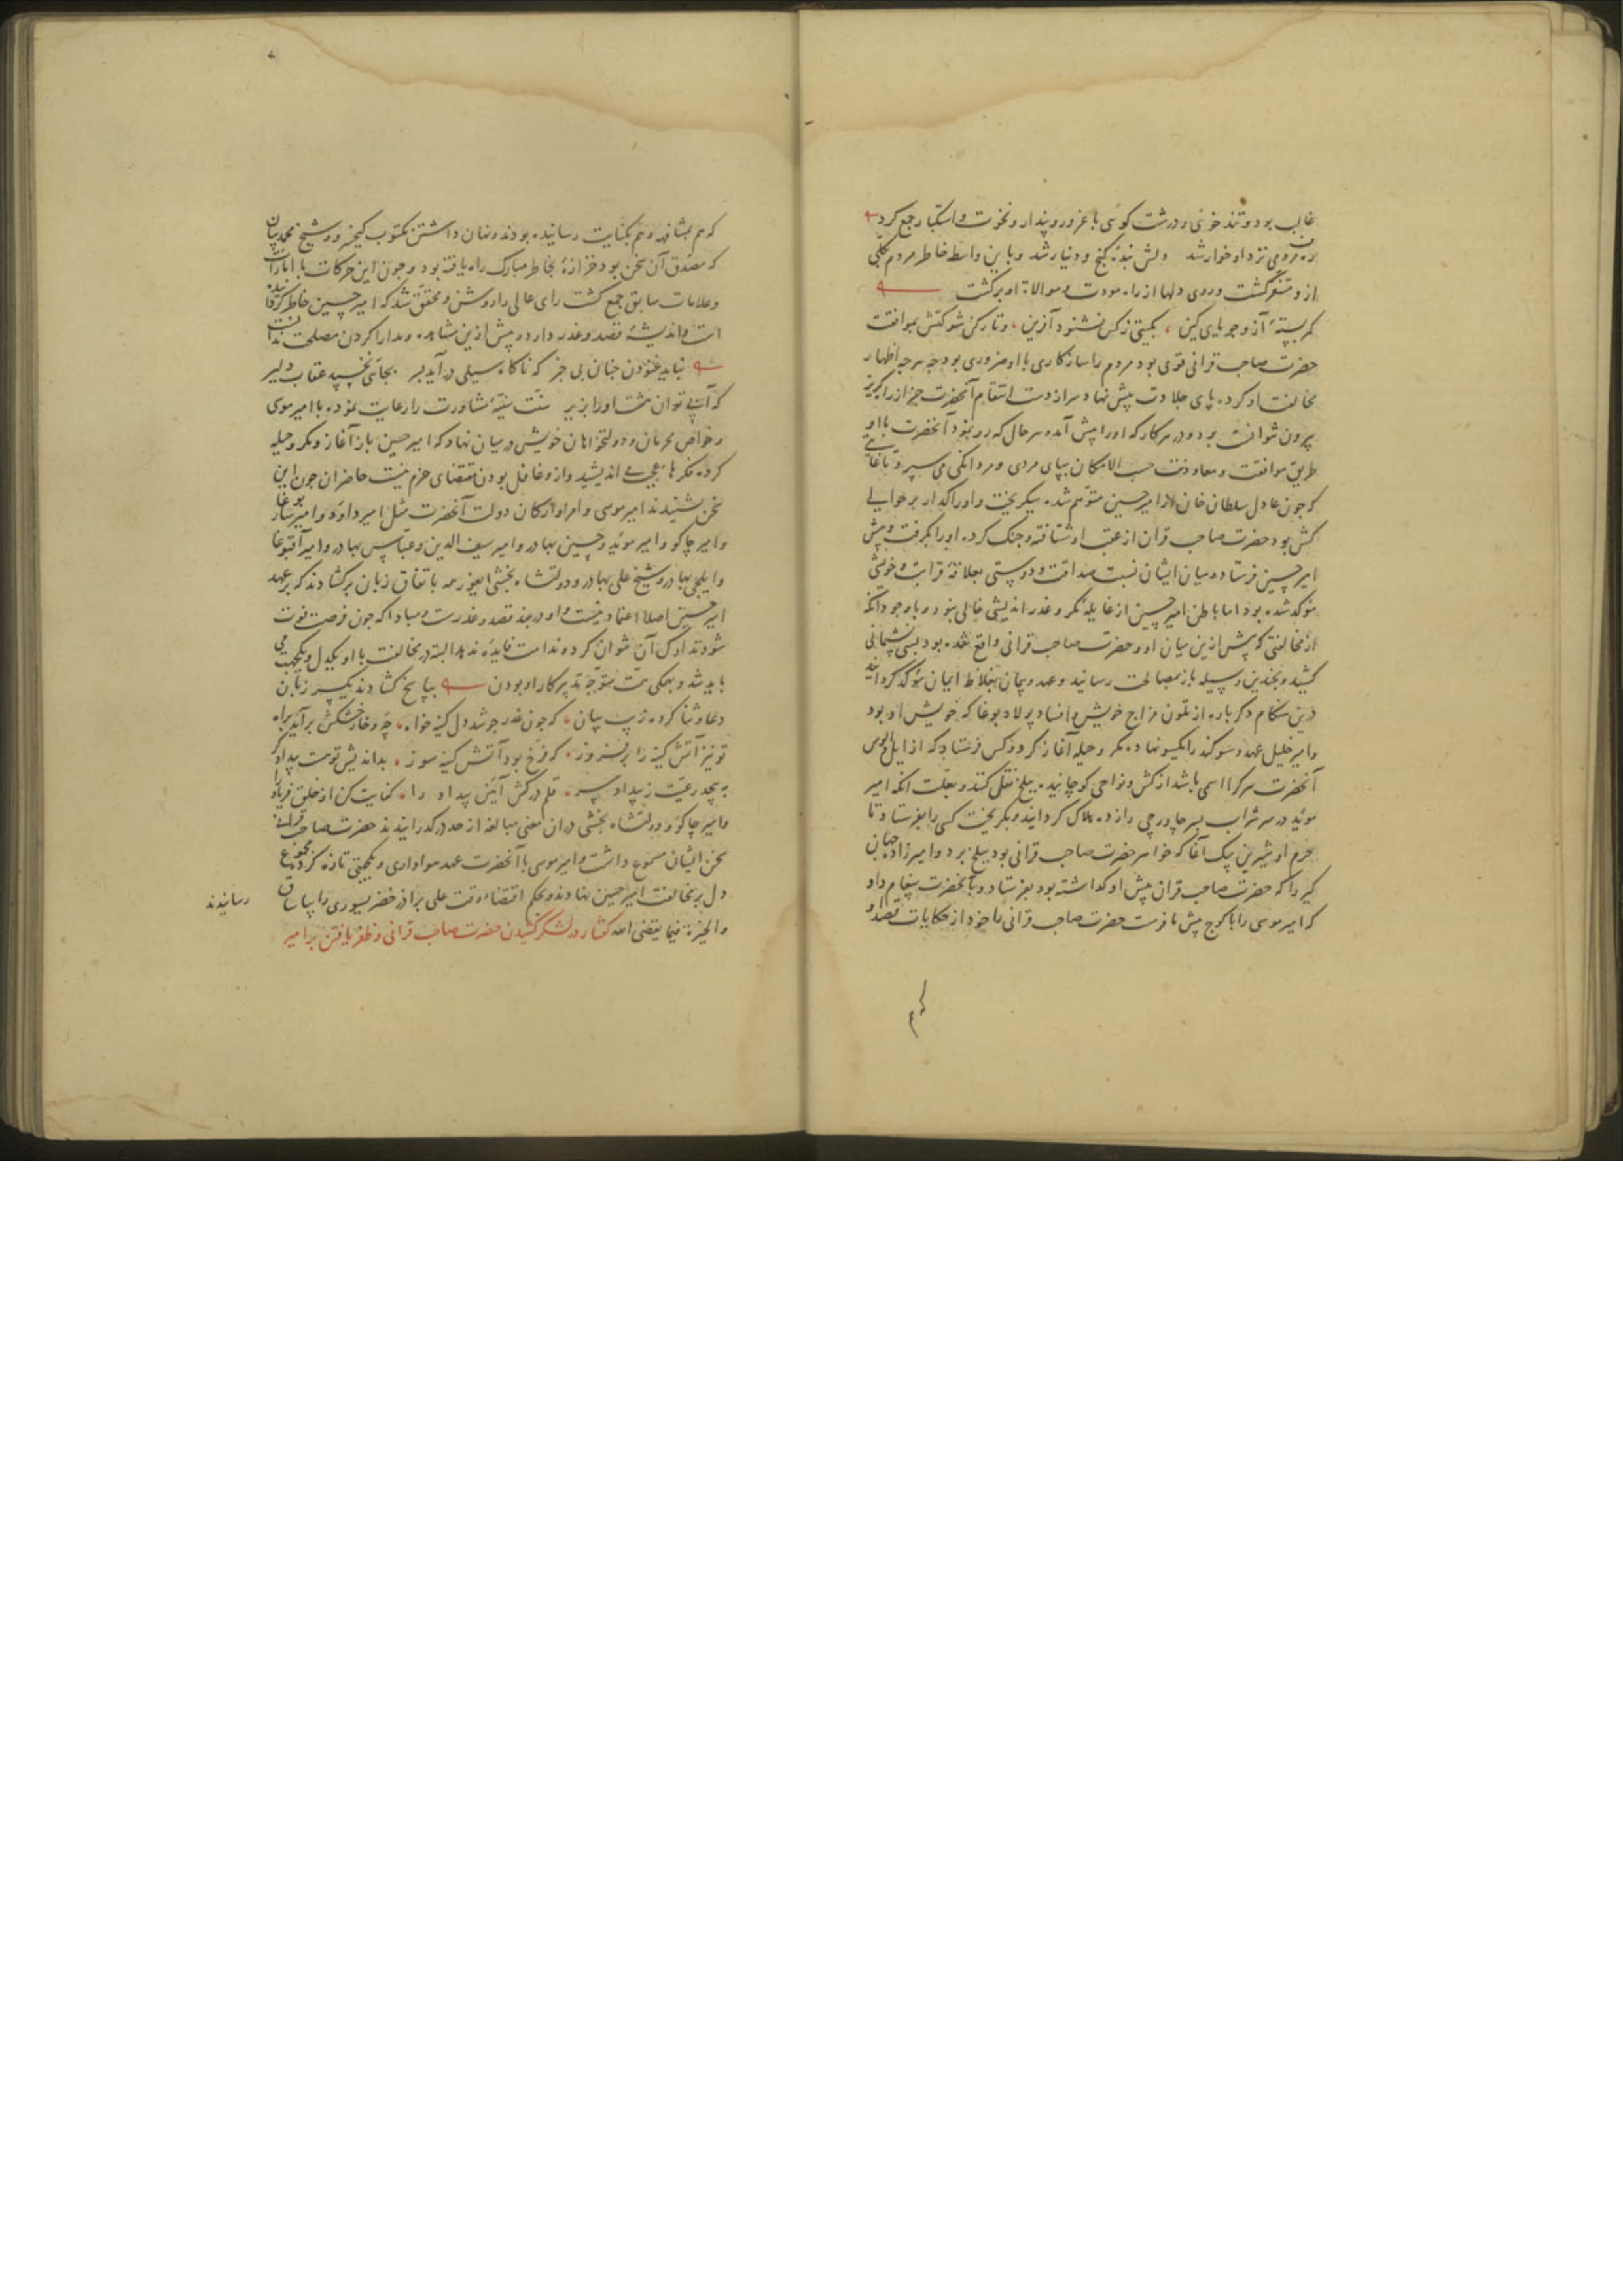 غالب بود و تند خوئی و درشت کوئی با غرور و پندار و نخوت و استکبار جمع کرده
مردمی نزد او خوار شد دلش بنده کنج و دنیار شد و باین واسطه خاطر مردم بکلی
ازو متنفر کشت و روی دلها از راه مودت و موالاة او برکشت
کمر بسته آز و جویای کین بکیتی ز کس نشنود آفرین و تا رکن شوکتش بموافقت
حضرت صاحب قرانی قوی بود مردم را سازکاری با او ضروری بود چه هرجه اظهار
مخالفت او کرده پای جلادت پیش نهاد سر از دست انتقام آنحضرت جز از راه کریز
بیرون نتوانست برد و در هر کار که او را پیش آمد و هر حال که رو نمود آنحضرت با او
طریق موافقت و معاونت حسب الامکان بپای مردی و مردانکی می سپرد تا غایتی
که جون عادل سلطان خان از امیر حسین متوهم شده بکریخت و او را کذار بر حوالی
کش بود حضرت صاحب قران از عقب او شتافته و جنک کرده او را بکرفت و پیش
امیر حسین فرستاد و میان ایشان نسبت صداقت و دوستی بعلاقه قرابت و خویشی
موکد شده بود اما باطن امیر حسین از غایله مکر و غدر اندیشی خالی نبود و باوجود آنکه
از مخالفتی که پیش ازین میان او و حضرت صاحب قرانی واقع شده بود بسی پشیمانی
کشید و بچندین وسیله باز بمصالحت رسانید و عهد و پیمان بغلاظ ایمان موکد کردانید
درین هنکام دکرباره از تلون مزاج خویش و افساد پولاد بوغا که خویش او بود
و امیر خلیل عهد و سوکند را یکسو نهاده مکر و حیله آغاز کرد و کس فرستاد که از ایل و الوس
آنحضرت هر کرا اسمی باشد از کش و نواحی کوچانیده ببلخ نقل کنند و بعلت انکه امیر
موید در سر شراب پسر چاورچی را زده هلاک کردانید و بکریخت کسی را بفرستاد تا
حرم او شیرین بیک آغا که خواهر حضرت صاحب قرانی بود ببلخ برد و امیرزاده جهان
کیر را که حضرت صاحب قران پیش او کذاشته بود بفرستاد و بآنحضرت پیغام داد
که امیر موسی را با کوچ پیش ما فرست حضرت صاحب قرانی را خود از حکایات قصد او
که هم بمشافهه و هم بکتابت رسانیده بودند و نهان داشتن مکتوب کیخسرو و شیخ محمد بیان
که مصدق آن سخن بود حزازه بخاطر مبارک راه یافته بود و جون این حرکات با امارات
و علامات سابق جمع کشت رای عالی را روشن و محقق شد که امیر حسین خاطر
است و اندیشه قصد و غدر دارد و پیش ازین مساهله و مدارا کردن مصلحت ندانست
نباید غنودن چنان بی خبر که ناکاه سیلی درآید بسر بجائی نخسپد عقاب دلیر
که آبی توان سنت سنیه مشاورت را رعایت نموده با امیر موسی
و خواص محرمان و دولتخواهان خویش در میان نهاد که امیر حسین باز آغاز مکر و حیله
کرده فکرهاء عجب می اندیشد و ازو غافل بودن مقتضای حزم نیست حاضران جون این
سخن بشنیدند امیر موسی و امرا و ارکان دولت آنحضرت مثل امیر داود و امیر ساربوغا
و امیر چاکو و امیر موید و حسین بهادر و امیر سیف الدین و عباس بهادر و امیر آقبوغا
و ایلچی بهادر و شیخ علی بهادر و دولتشاه بخشی ایغور همه باتفاق زبان برکشادند که بر عهد
امیر حسین اصلا اعتماد نیست و او در بند قصد و غدرست و مبادا که جون فرصت فوت
شود تدارک آن نتوان کرد و ندامت فایده ندهد البته در مخالفت با او یکدل و یکجهت می
باید شد و بهمکی همت متوجه تدبیر کار او بودن بپاسخ کشادند یکسر زبان
دعا و ثنا کرده زیب بیان که جون غدر جوشد دل کینه خواه چو خار خشکش برآید براه
تو نیز آتش کینه را برفروز که فرخ بود آتش کینه سوز بداندیش تو هست بیدادکر
به پیچد رعیت ز بیداد سر قلم درکش آیین بیداد را کفایت کن از خلق فریاد را
و امیر چاکو و دولتشاه بخشی در ان معنی مبالغه از حد درکذرانیدند حضرت صاحب قرانی
سخن ایشان مسموع داشت و امیر موسی با آنحضرت عهد هواداری و یکجهتی تازه کرد و مجموع
دل بر مخالفت امیر حسین نهادند و بحکم اقتضاء وقت علی برادر خضر یسوری را بیاساق رسانیدند
والخیرة فیما یقضی الله کفتار در لشکر کشیدن حضرت صاحب قرانی و ظفر یافتن بر امیر